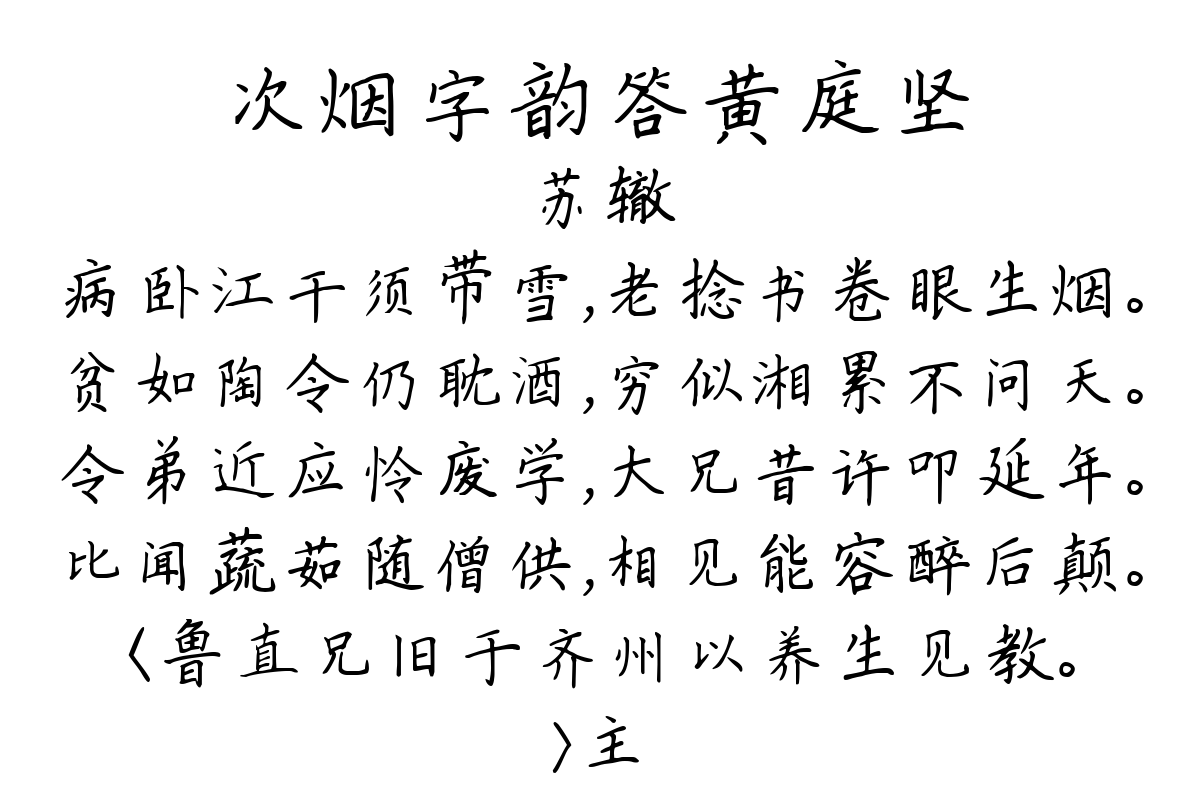 次烟字韵答黄庭坚
苏辙
病卧江干须带雪,老捻书卷眼生烟。
贫如陶令仍耽酒,穷似湘累不问天。
令弟近应怜废学,大兄昔许叩延年。
比闻蔬茹随僧供,相见能容醉后颠。
〈鲁直兄旧于齐州以养生见教。
〉主